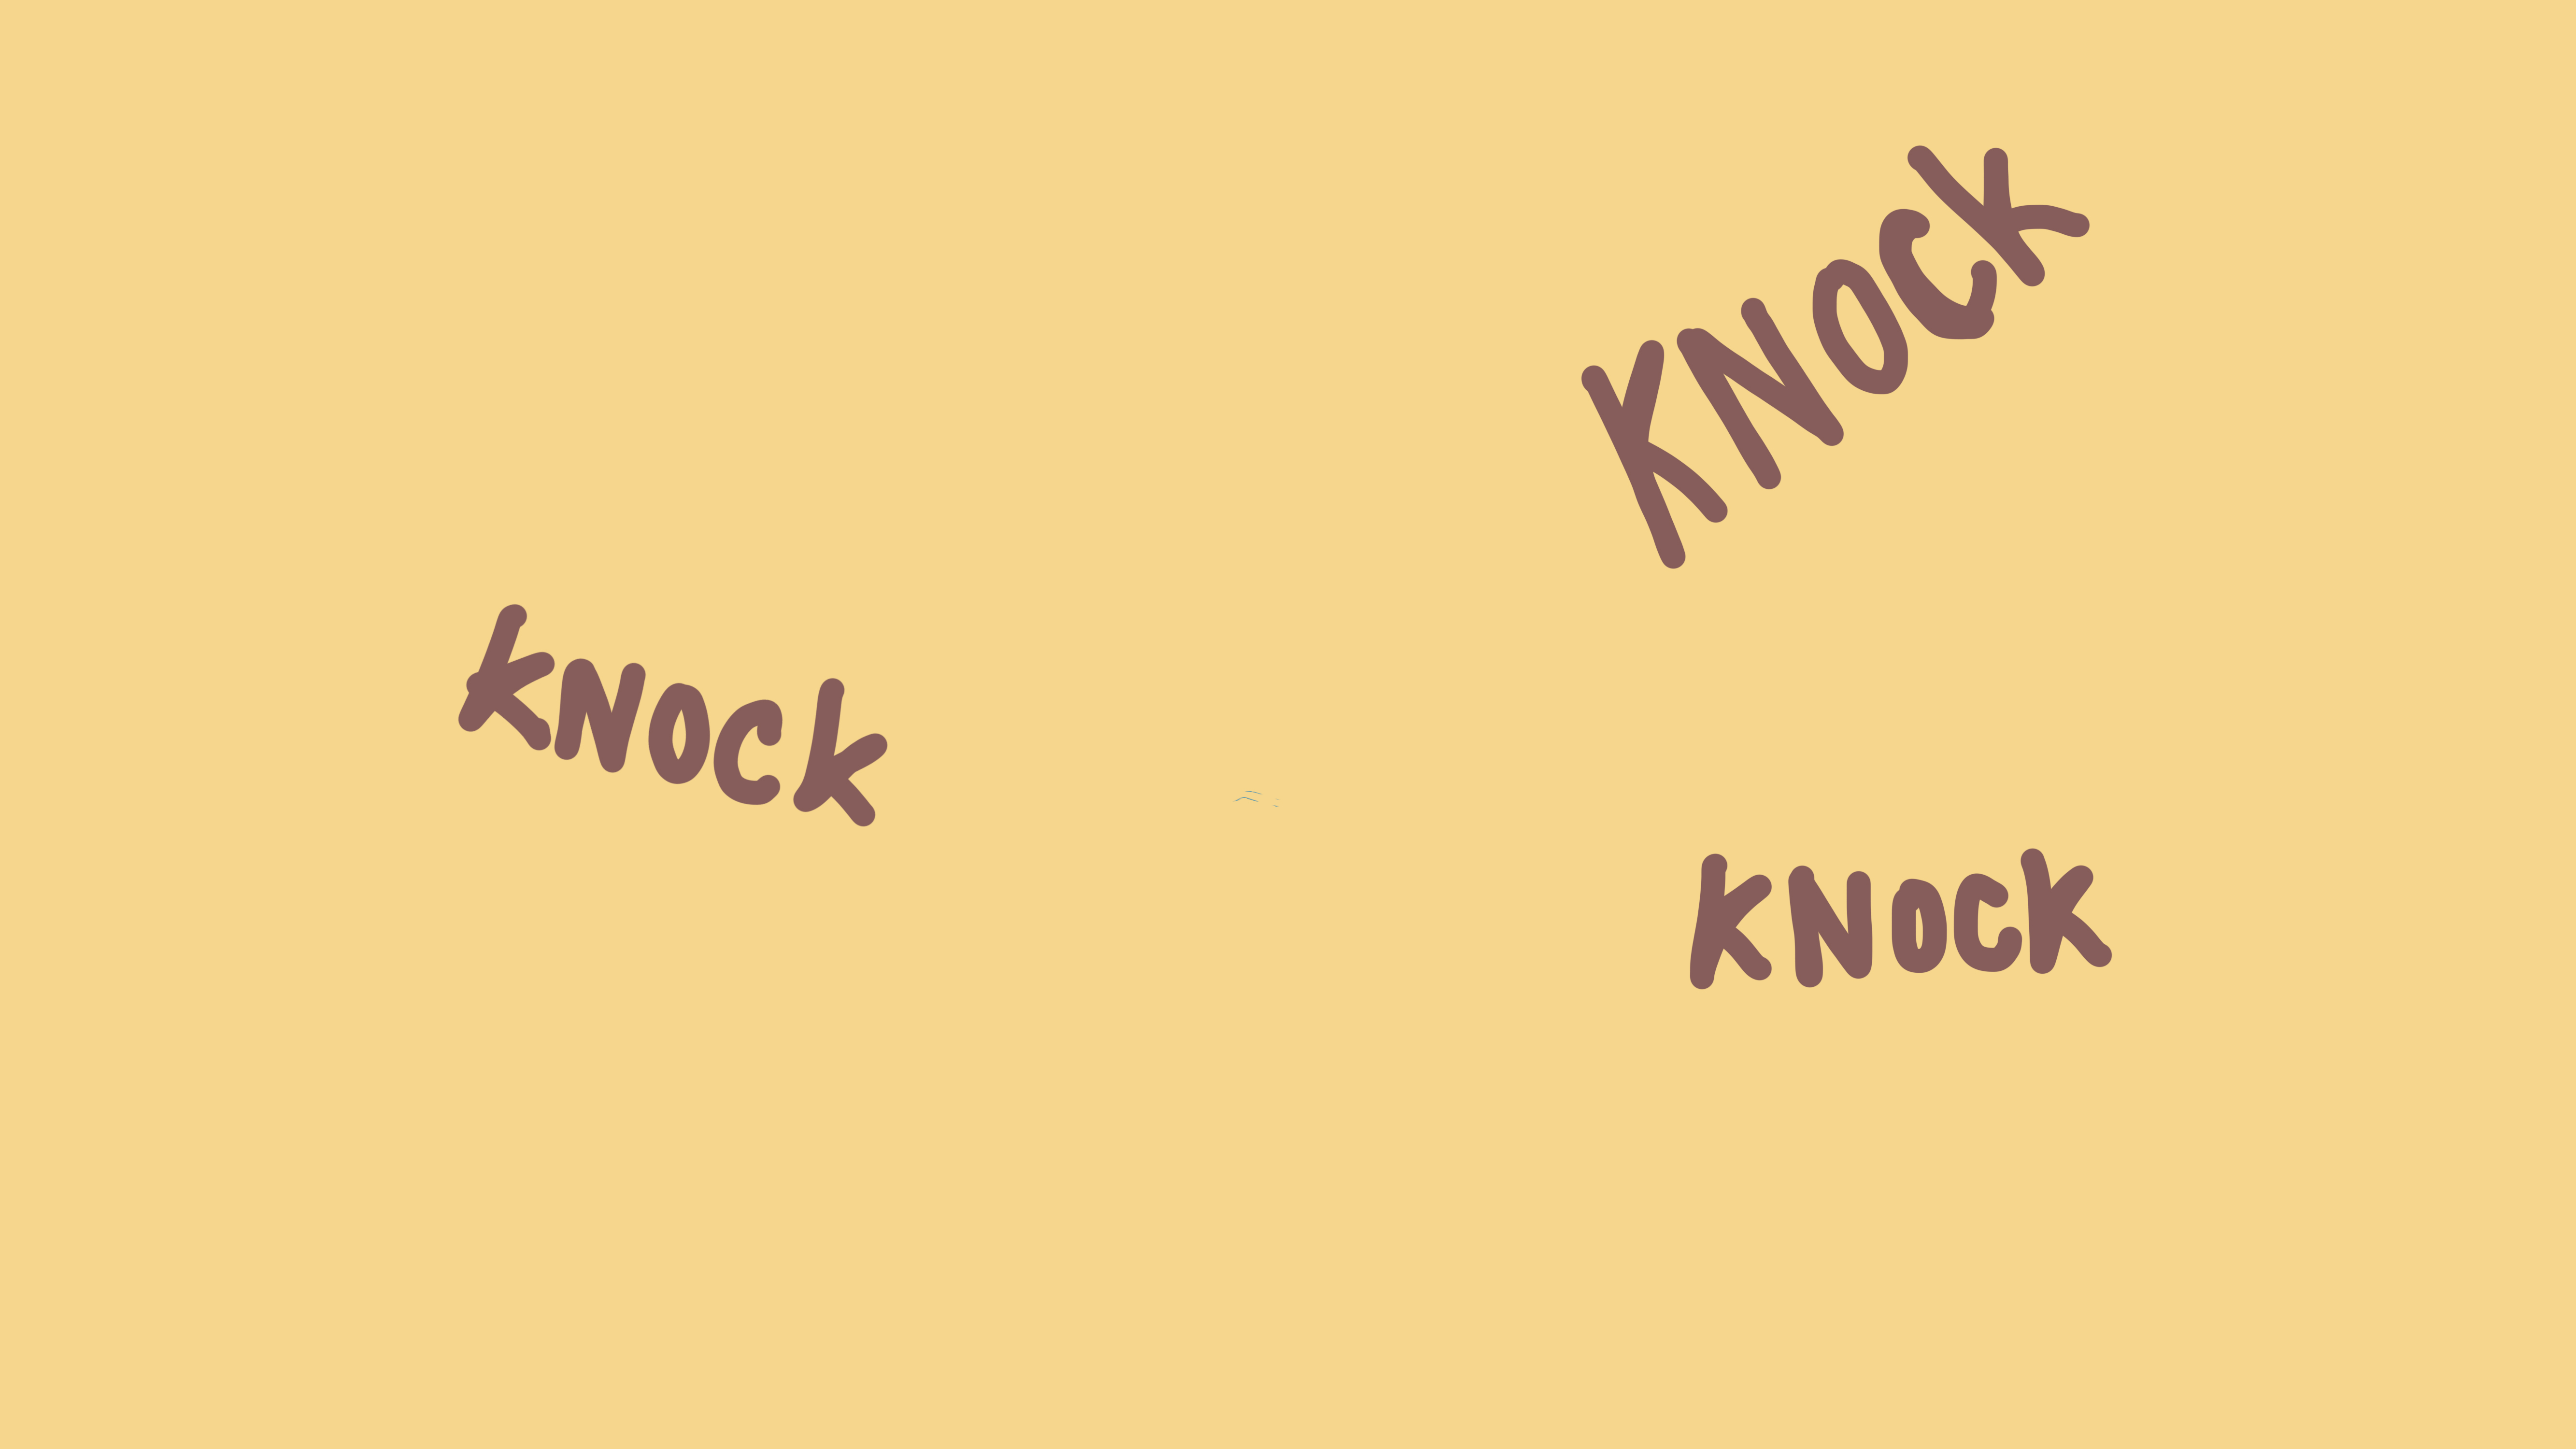 KNOCK
KNOCK
KNOCK